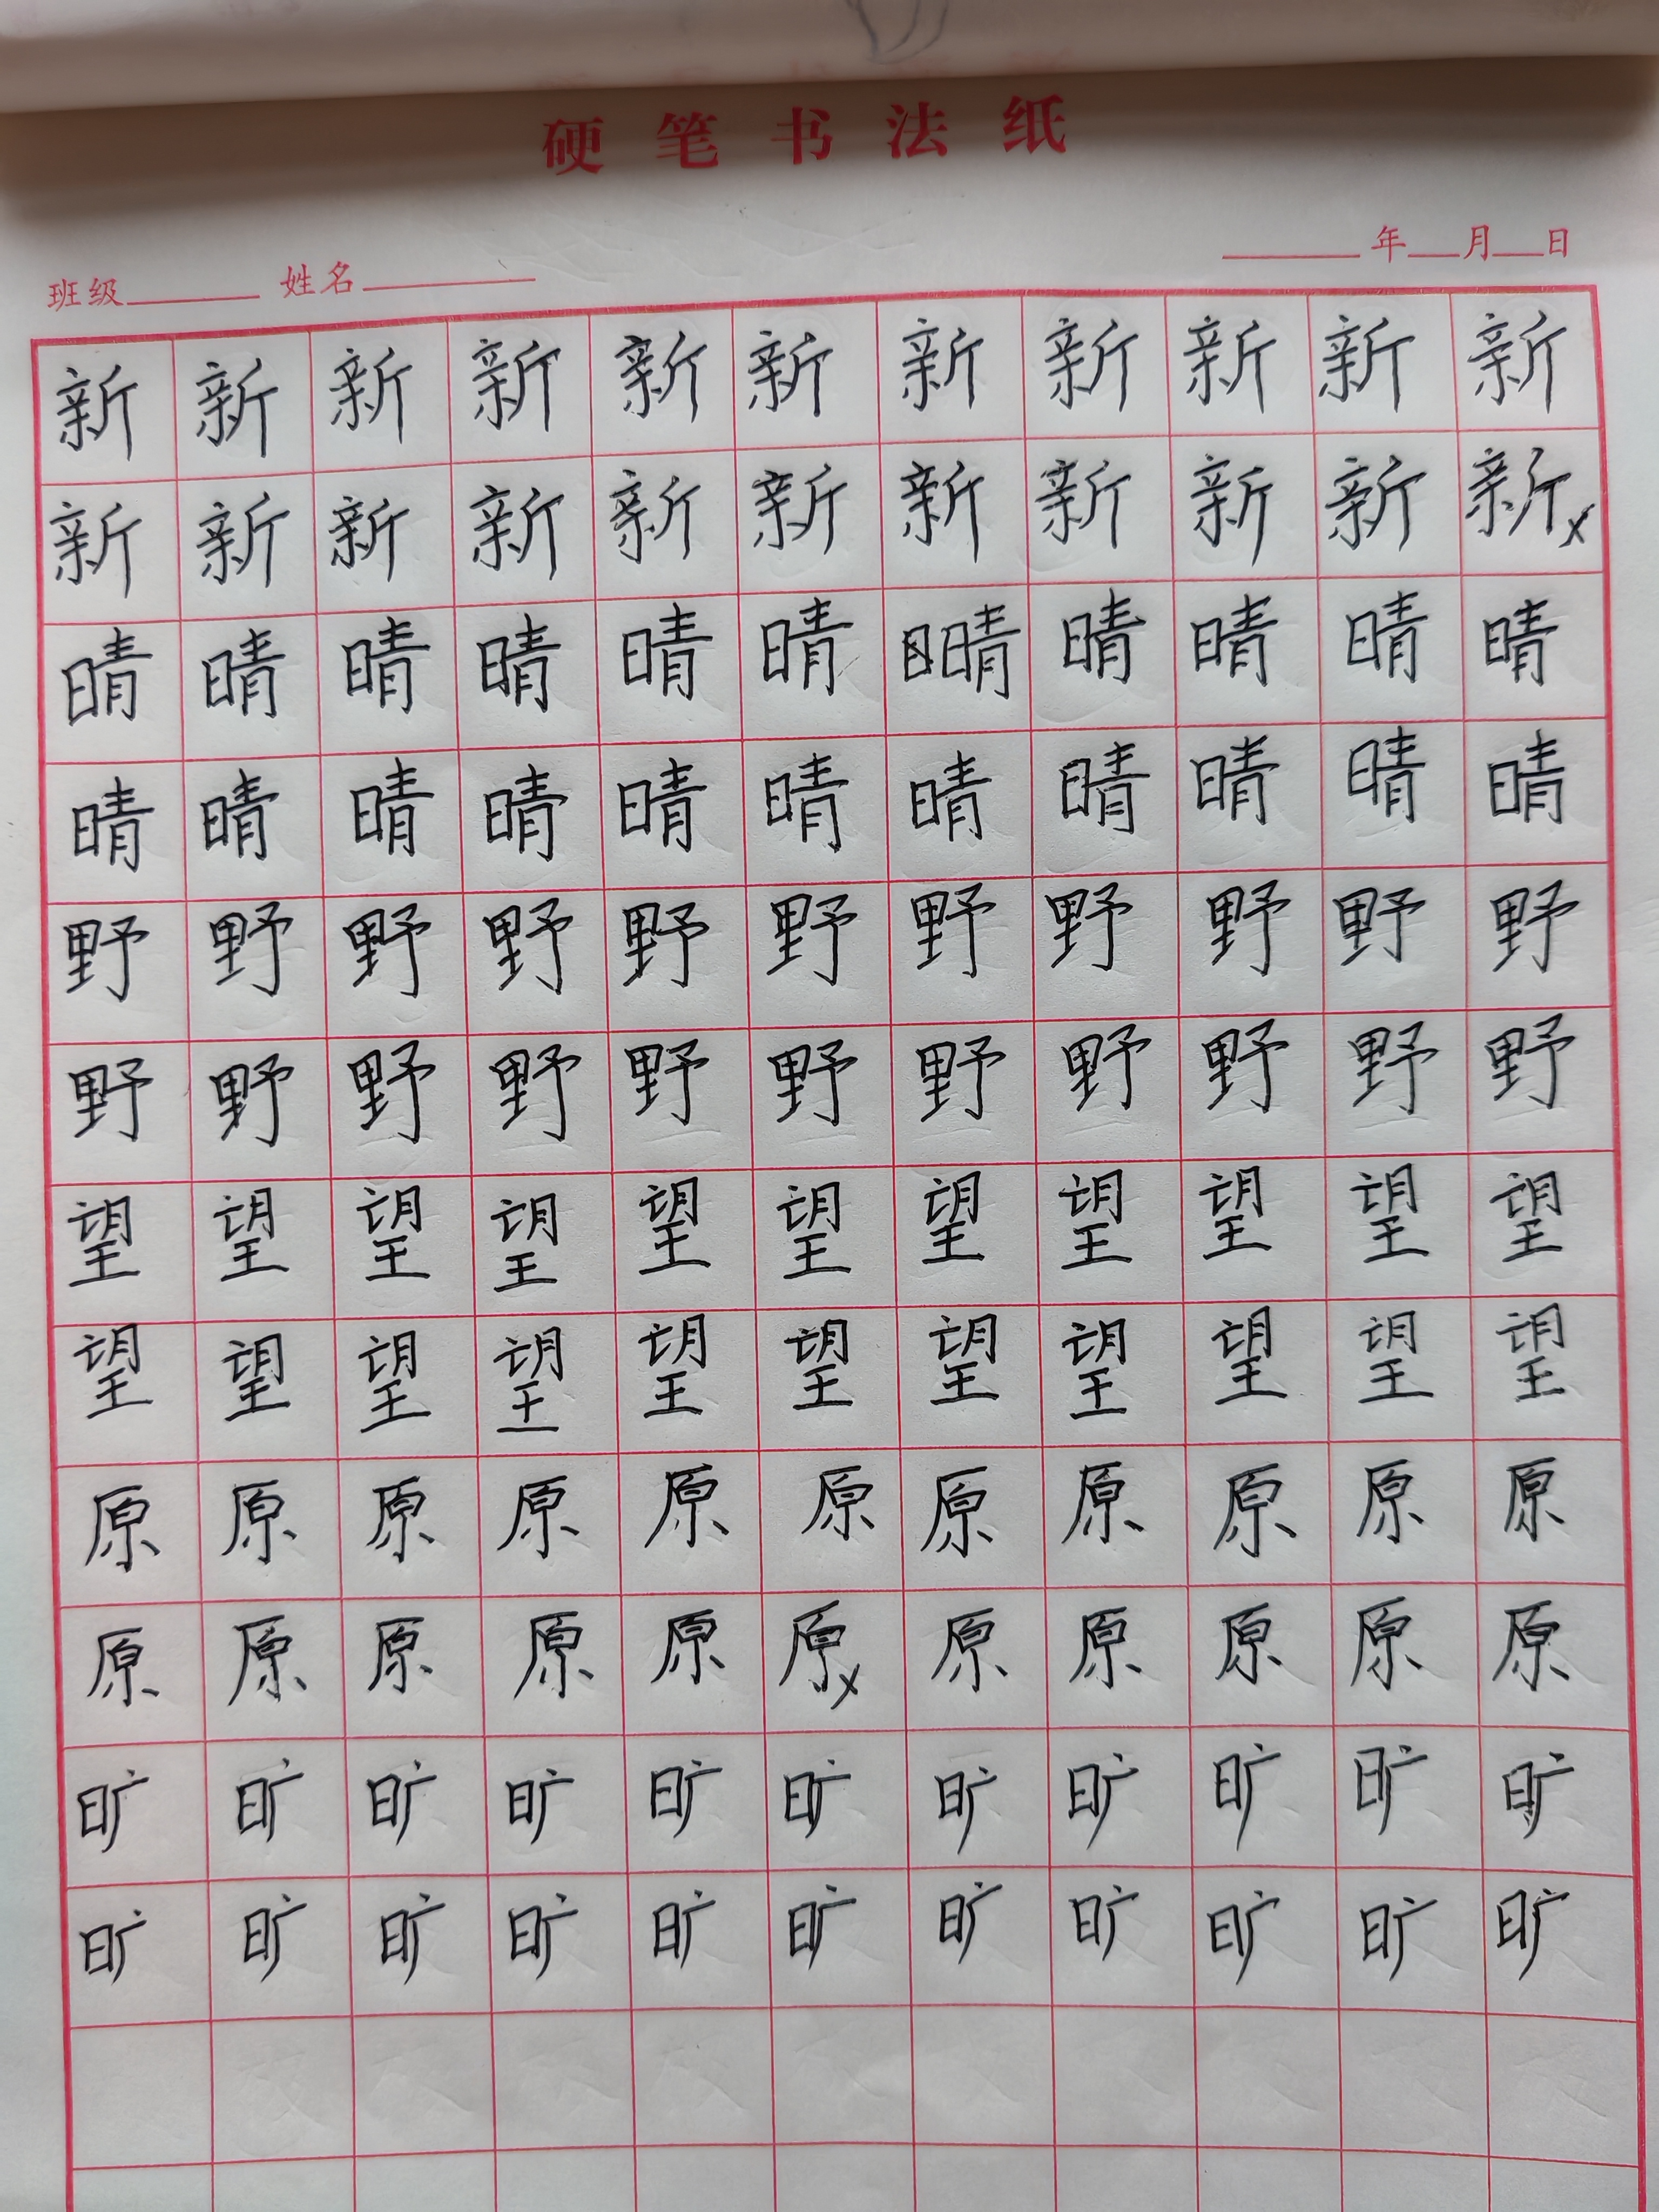 硬笔书法纸
班级 姓名 年 月 日
新新新新新新新新新新新
新新新新新新新新新新新x
晴晴晴晴晴晴晴晴晴晴晴
晴晴晴晴晴晴晴晴晴晴晴
野野野野野野野野野野野
野野野野野野野野野野野
望望望望望望望望望望望
望望望望望望望望望望望
原原原原原原原原原原原
原原原原原原x原原原原原
旷旷旷旷旷旷旷旷旷旷旷
旷旷旷旷旷旷旷旷旷旷旷